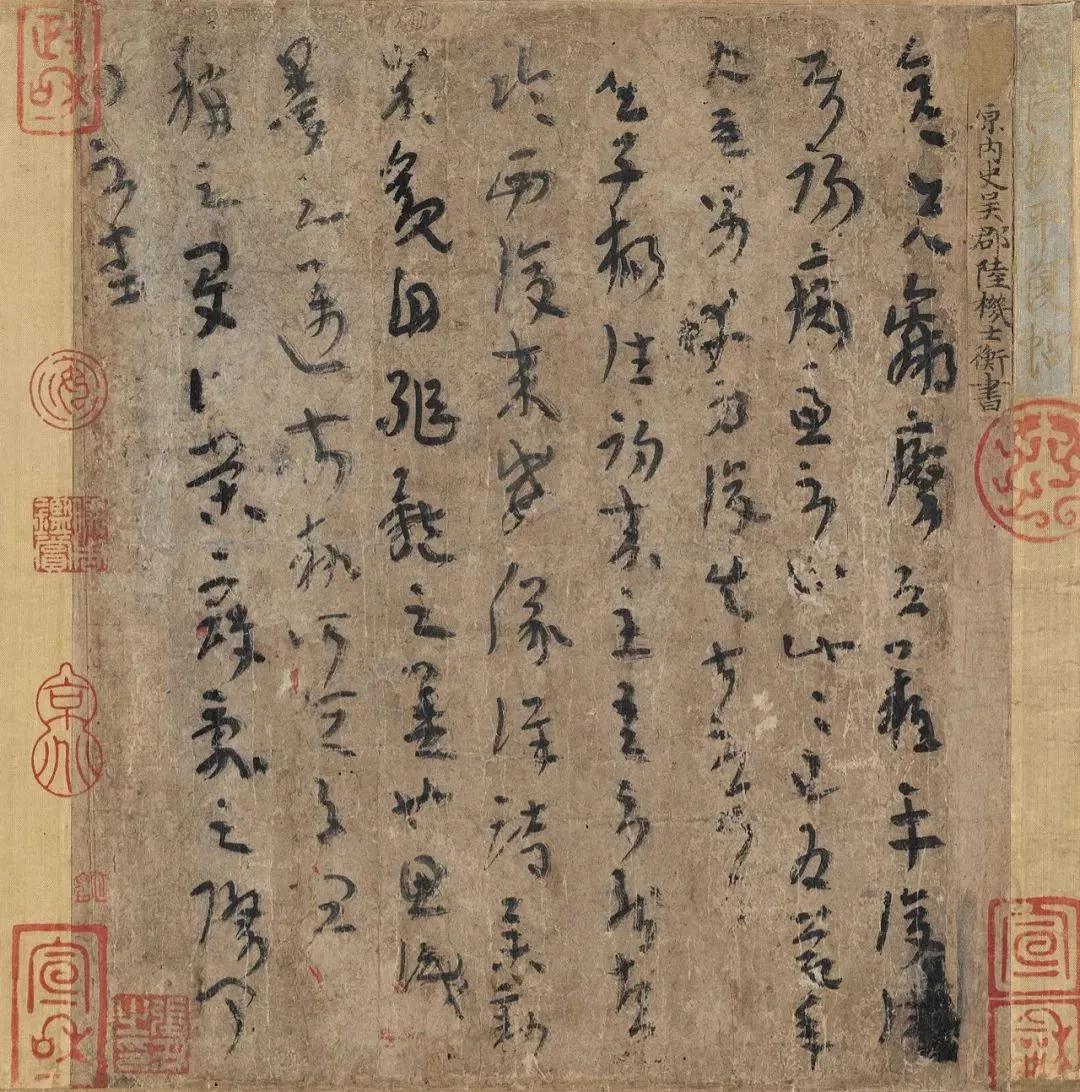 晉陸機平復帖
內史吳郡陸機士衡書
彥先羸瘵恐難平復往屬
初病慮不止此此已為慶承
使唯男幸為復失前憂耳
吳子楊往初來主吾不能盡
臨西復來威儀詳跱舉動
成觀自軀體之美也思識
量之邁前執所恒有宜
稱之夏伯榮寇亂之際聞
問不悉
政和
宣和
宣和